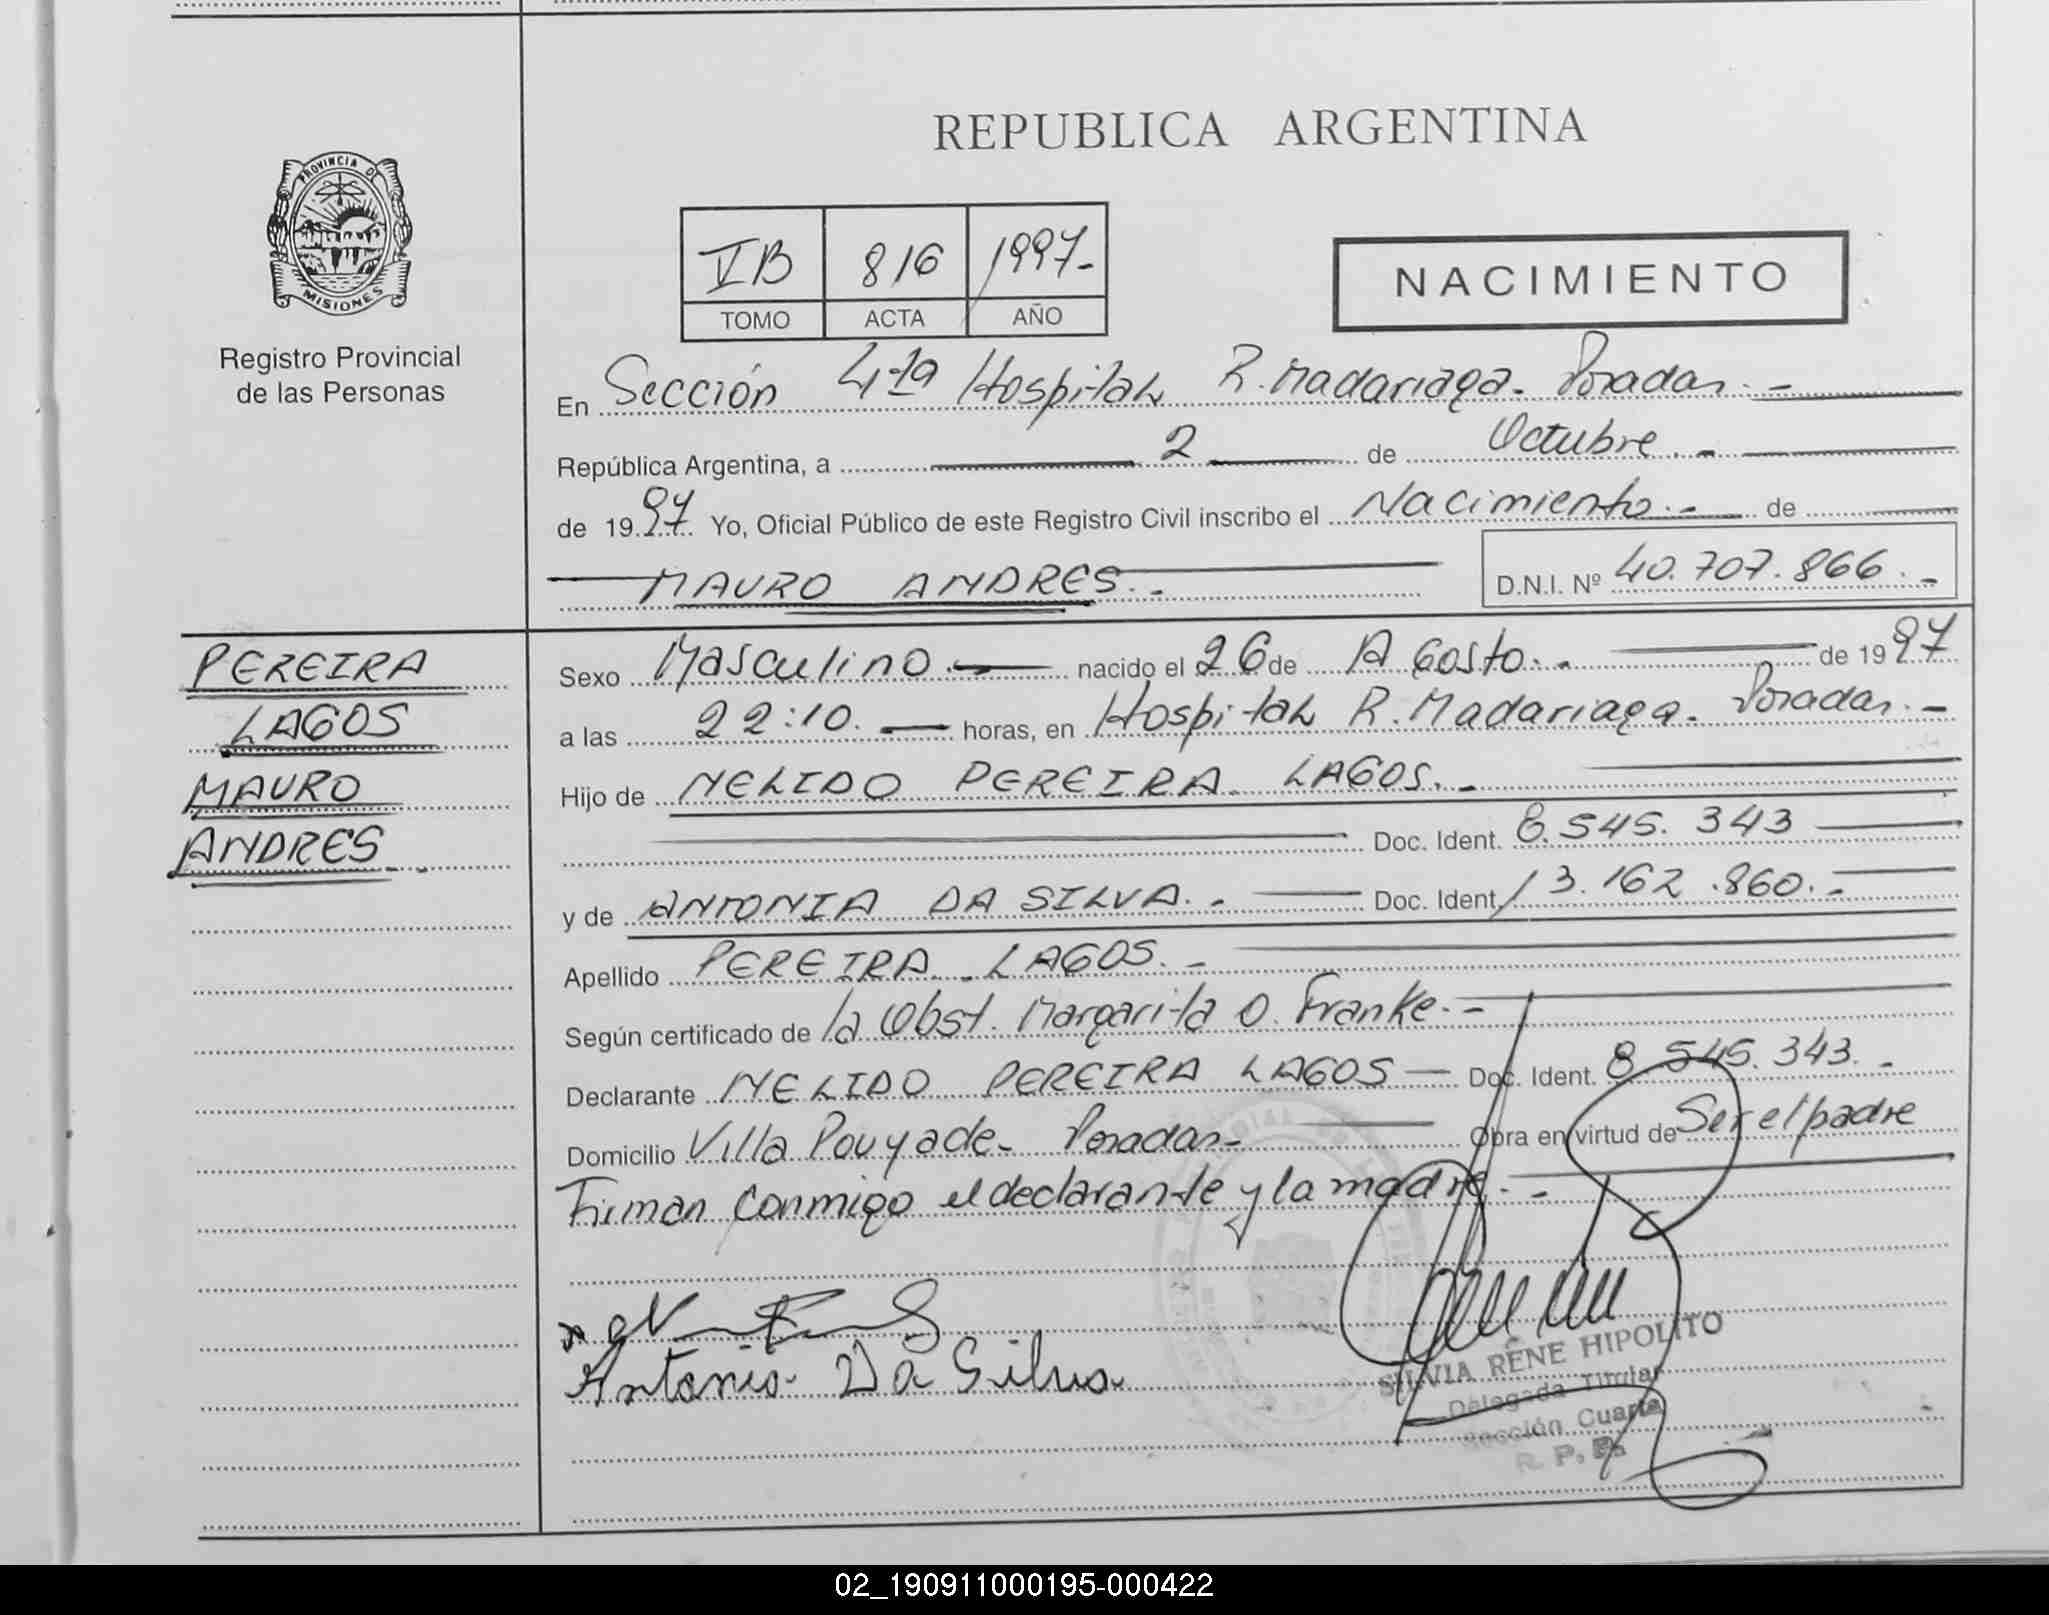 REPUBLICA ARGENTINA
PROVINCIA DE
MISIONES
Registro Provincial
de las Personas
VB 816 1997.-
TOMO ACTA AÑO
NACIMIENTO
En Sección 4ta Hospital R. Madariaga. Posadas.-
República Argentina, a 2 de Octubre.-
de 1997. Yo, Oficial Público de este Registro Civil inscribo el Nacimiento.- de
MAURO ANDRES.- D.N.I. Nº 40.707.866.-
PEREIRA
LAGOS
MAURO
ANDRES.-
Sexo Masculino.- nacido el 26 de Agosto.- de 1997
a las 22:10.- horas, en Hospital R. Madariaga. Posadas.-
Hijo de NELIDO PEREIRA LAGOS.-
Doc. Ident. 8.545.343
y de ANTONIA DA SILVA.- Doc. Ident. 13.162.860.-
Apellido PEREIRA LAGOS.-
Según certificado de la Obst. Margarita O. Franke.-
Declarante NELIDO PEREIRA LAGOS - Doc. Ident. 8.545.343.-
Domicilio Villa Pouyade- Posadas- Obra en virtud de Ser el padre
Firman conmigo el declarante y la madre.-
Antonia Da Silva
SILVIA RENE HIPOLITO
Delegada Titular
Sección Cuarta
R. P. P.
02_190911000195-000422